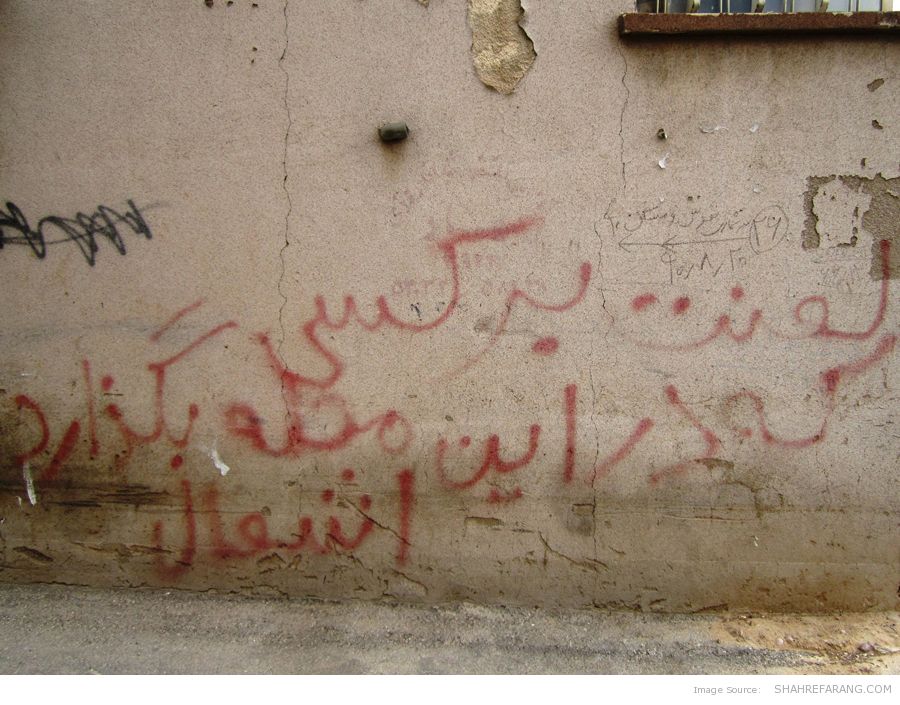 لعنت بر کسی
که در این محله بگذارد
اشعال
Image Source: SHAHREFARANG.COM